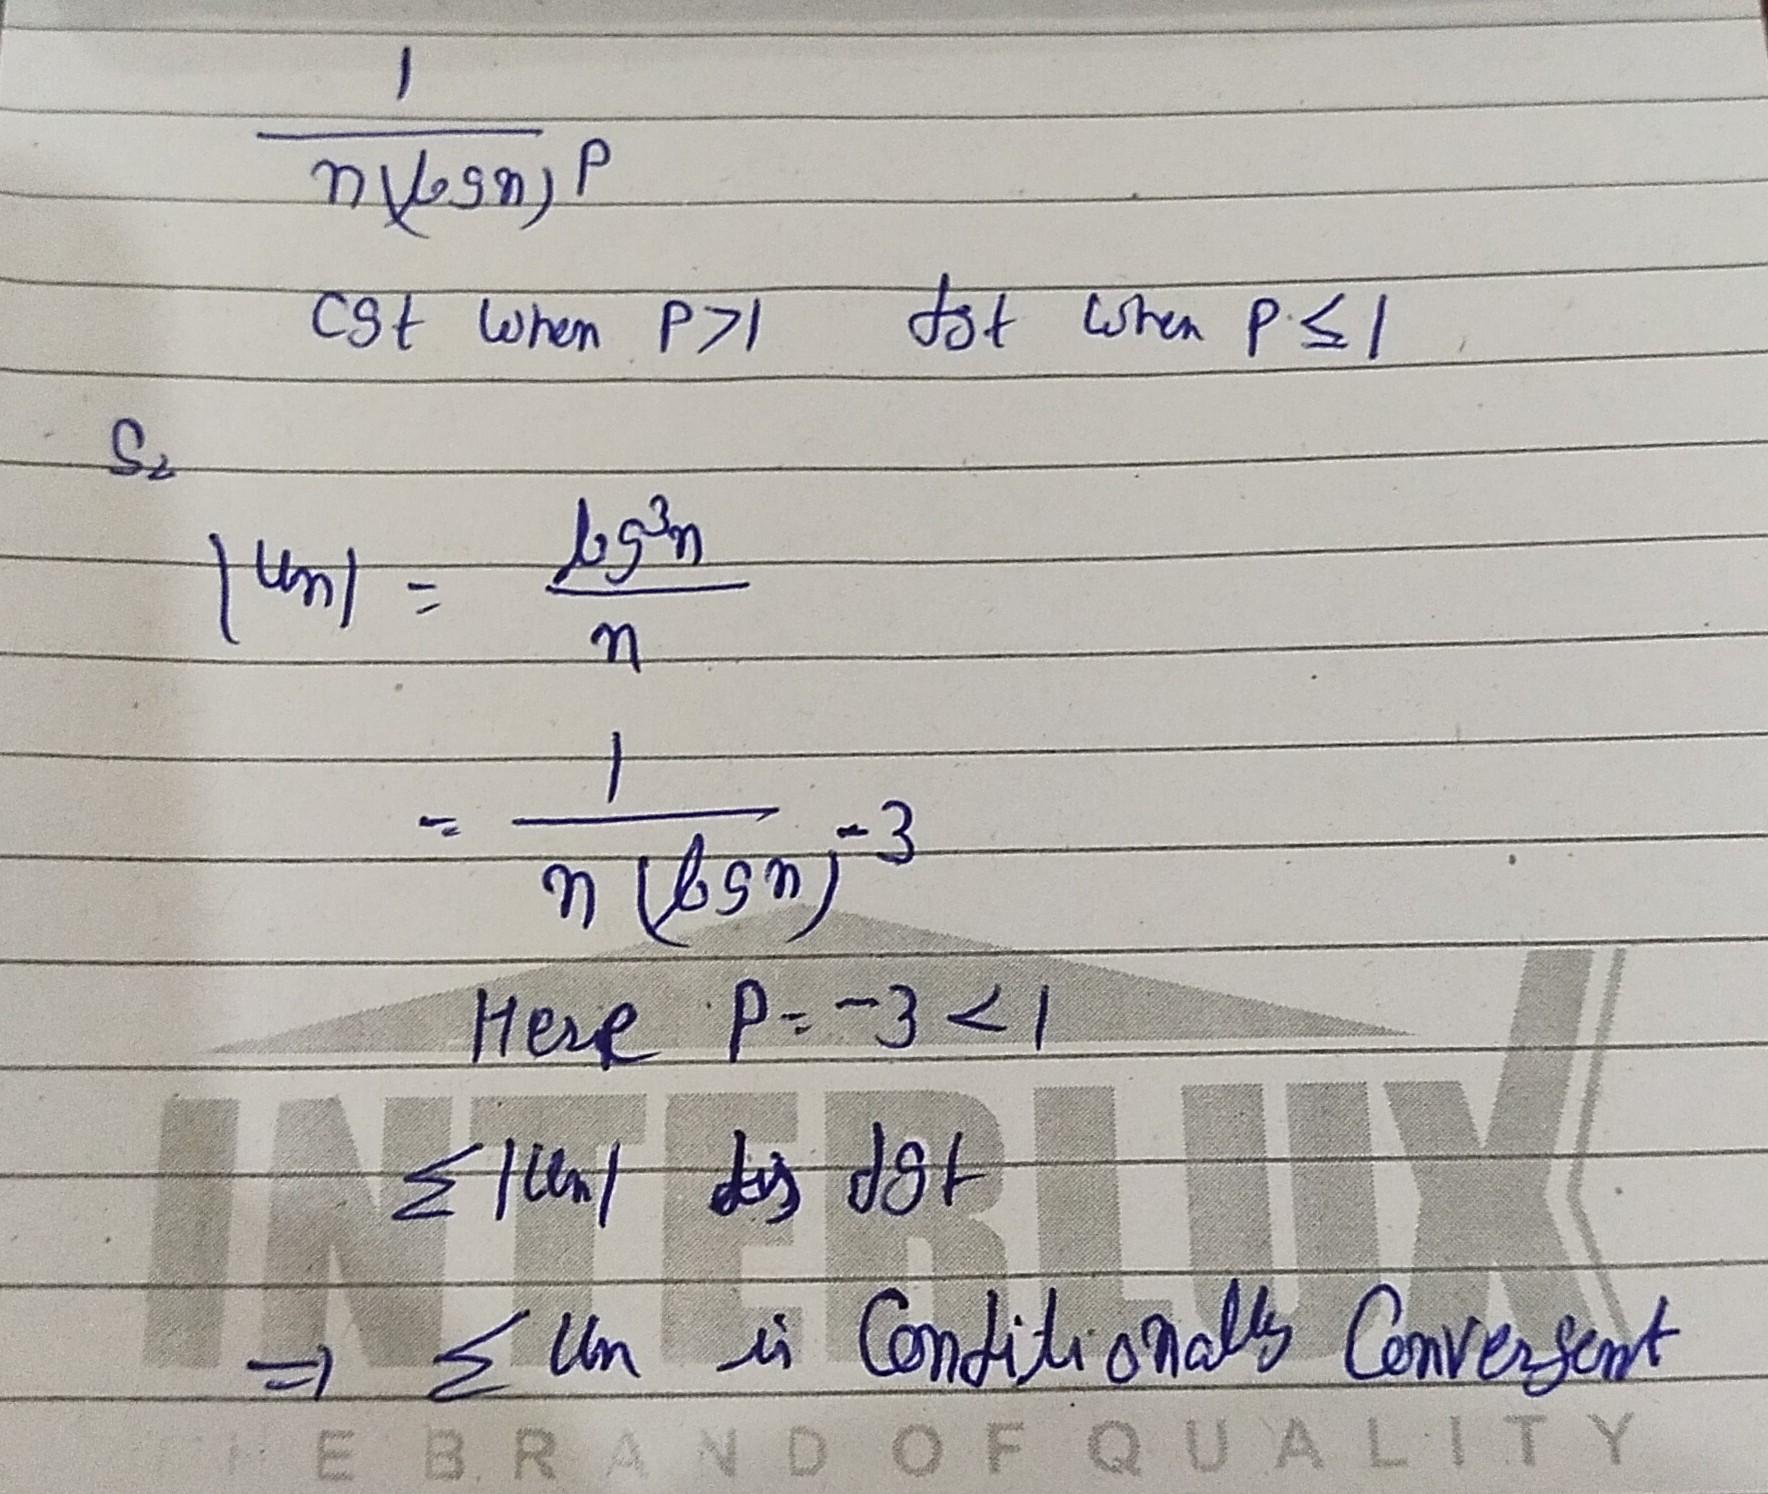 1
n(logn)^P
Cgt when P>1 dgt when P ≤ 1
S2
|Un| = log³n
n
= 1
n (logn)^-3
Here P = -3 < 1
Σ |Un| is dgt
⇒ Σ Un is Conditionally Convergent
INTERLUX
THE BRAND OF QUALITY